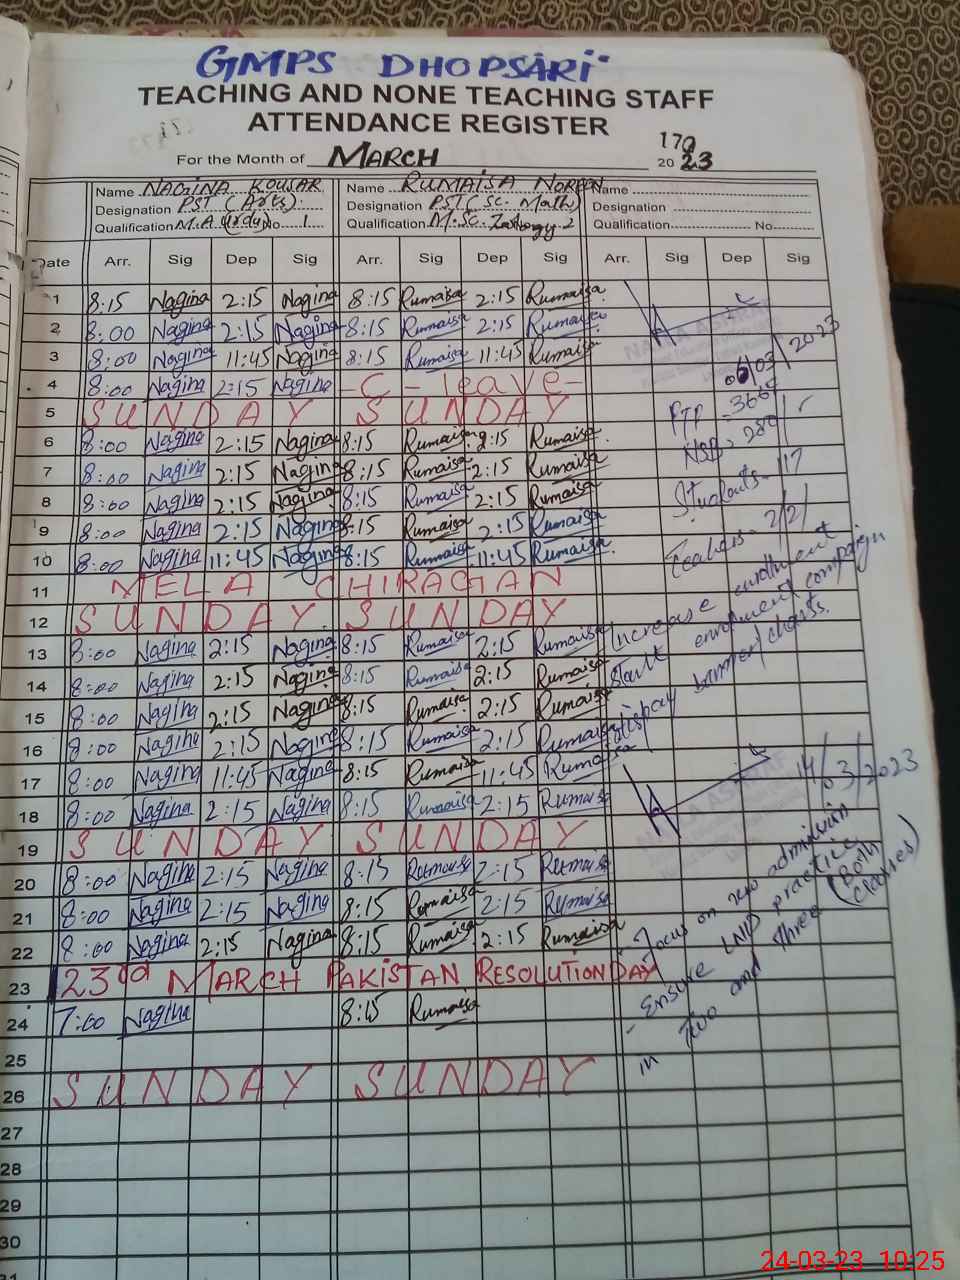 GMPS DHOPSARI
TEACHING AND NONE TEACHING STAFF
ATTENDANCE REGISTER
179
For the Month of MARCH 2023
Name NAGINA KOUSAR Name RUMAISA Name
Designation PST (Arts) Designation PST (Sc. Math) Designation
Qualification M.A (Urdu) No 1 Qualification M.Sc. Zoology 2 Qualification No.
Date Arr. Sig Dep Sig Arr. Sig Dep Sig Arr. Sig Dep Sig
1 8:15 Nagina 2:15 Nagina 8:15 Rumaisa 2:15 Rumaisa
2 8:00 Nagina 2:15 Nagina 8:15 Rumaisa 2:15 Rumaisa
3 8:00 Nagina 11:45 Nagina 8:15 Rumaisa 11:45 Rumaisa
4 8:00 Nagina 2:15 Nagina - C - leave -
5 SUNDAY SUNDAY
6 8:00 Nagina 2:15 Nagina 8:15 Rumaisa 2:15 Rumaisa
7 8:00 Nagina 2:15 Nagina 8:15 Rumaisa 2:15 Rumaisa
8 8:00 Nagina 2:15 Nagina 8:15 Rumaisa 2:15 Rumaisa
9 8:00 Nagina 2:15 Nagina 8:15 Rumaisa 2:15 Rumaisa
10 8:00 Nagina 11:45 Nagina 8:15 Rumaisa 11:45 Rumaisa
11 MELA CHIRAGAN
12 SUNDAY SUNDAY
13 8:00 Nagina 2:15 Nagina 8:15 Rumaisa 2:15 Rumaisa
14 8:00 Nagina 2:15 Nagina 8:15 Rumaisa 2:15 Rumaisa
15 8:00 Nagina 2:15 Nagina 8:15 Rumaisa 2:15 Rumaisa
16 8:00 Nagina 2:15 Nagina 8:15 Rumaisa 2:15 Rumaisa
17 8:00 Nagina 11:45 Nagina 8:15 Rumaisa 11:45 Rumaisa
18 8:00 Nagina 2:15 Nagina 8:15 Rumaisa 2:15 Rumaisa
19 SUNDAY SUNDAY
20 8:00 Nagina 2:15 Nagina 8:15 Rumaisa 2:15 Rumaisa
21 8:00 Nagina 2:15 Nagina 8:15 Rumaisa 2:15 Rumaisa
22 8:00 Nagina 2:15 Nagina 8:15 Rumaisa 2:15 Rumaisa
23 23rd MARCH PAKISTAN RESOLUTION DAY
24 7:00 Nagina 8:15 Rumaisa
25
26 SUNDAY SUNDAY
27
28
29
30
31
06/03/2023
PTP
NSB
Students - 117
Teachers - 2/2/
Increase enrollment
Start enrolment campaign
display banner/charts.
14/03/2023
- Focus on new admission
- Ensure LND practice
in Two and Three (Both Classes)
24-03-23 10:25